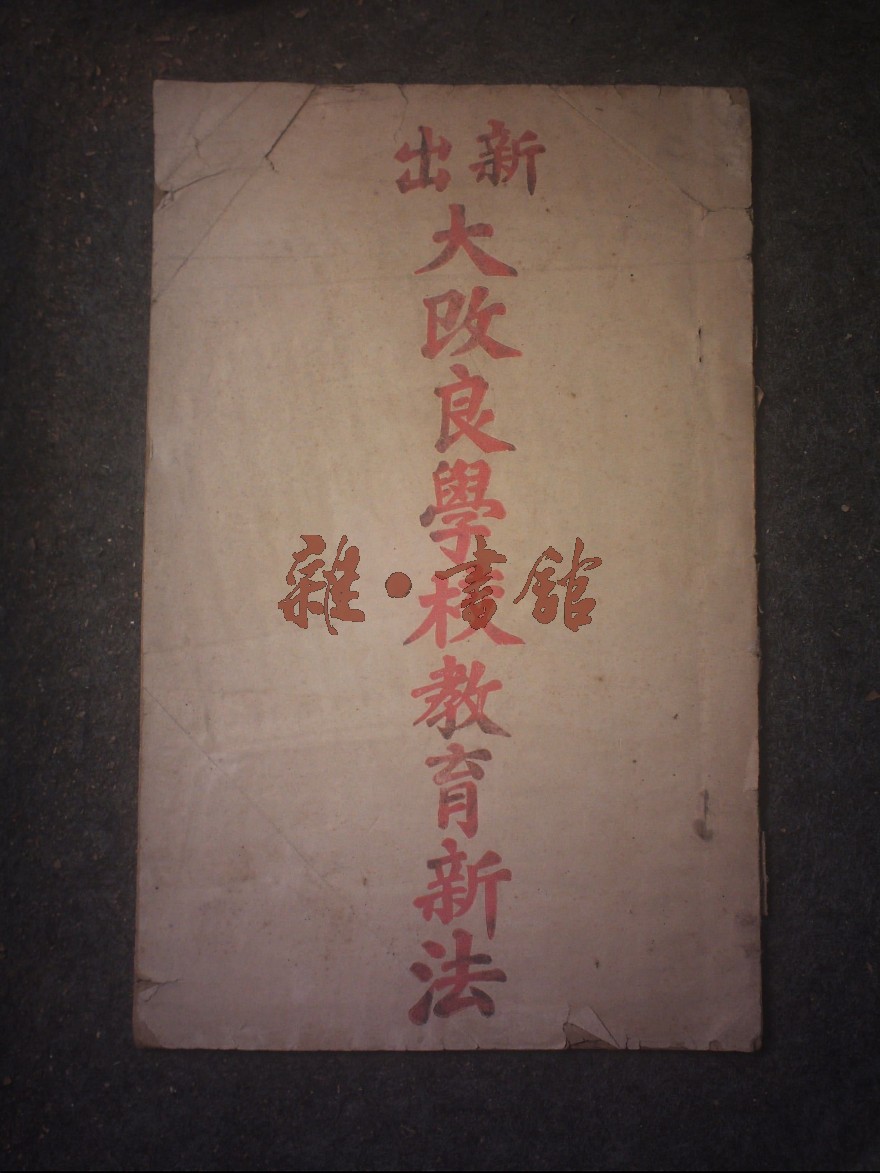 新出
大改良學校教育新法
雜·書館